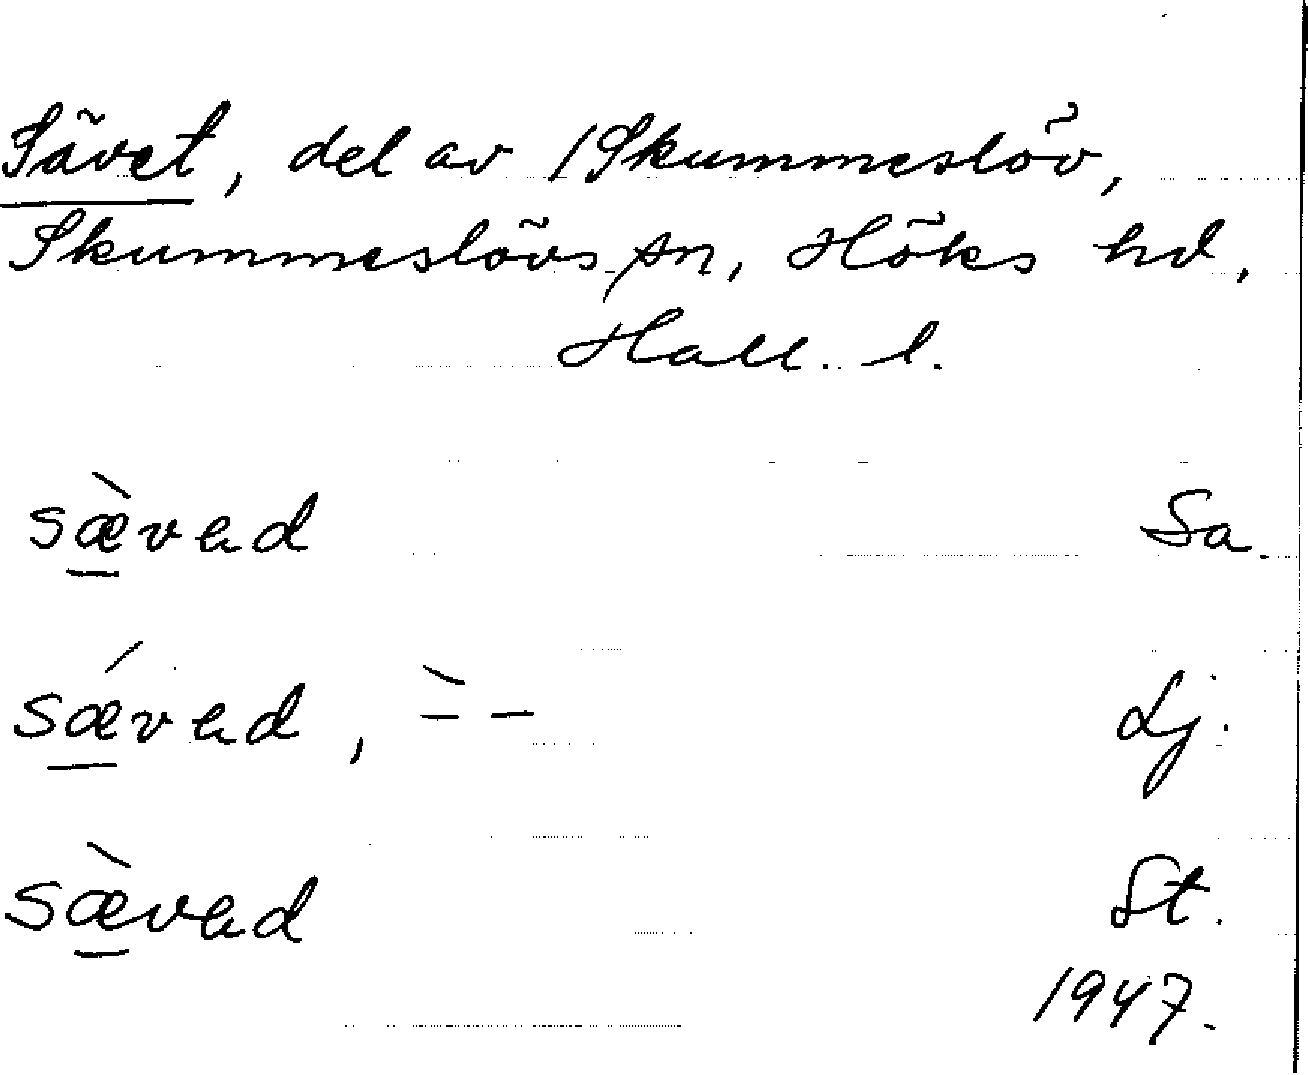 Sävet, del av /Skummeslöv,
Skummeslövs sn, Höks hd,
Hall. l.
sæ̀vəd Sa.
sǽvəd, ̀- - Lj.
sæ̀vəd St.
1947.